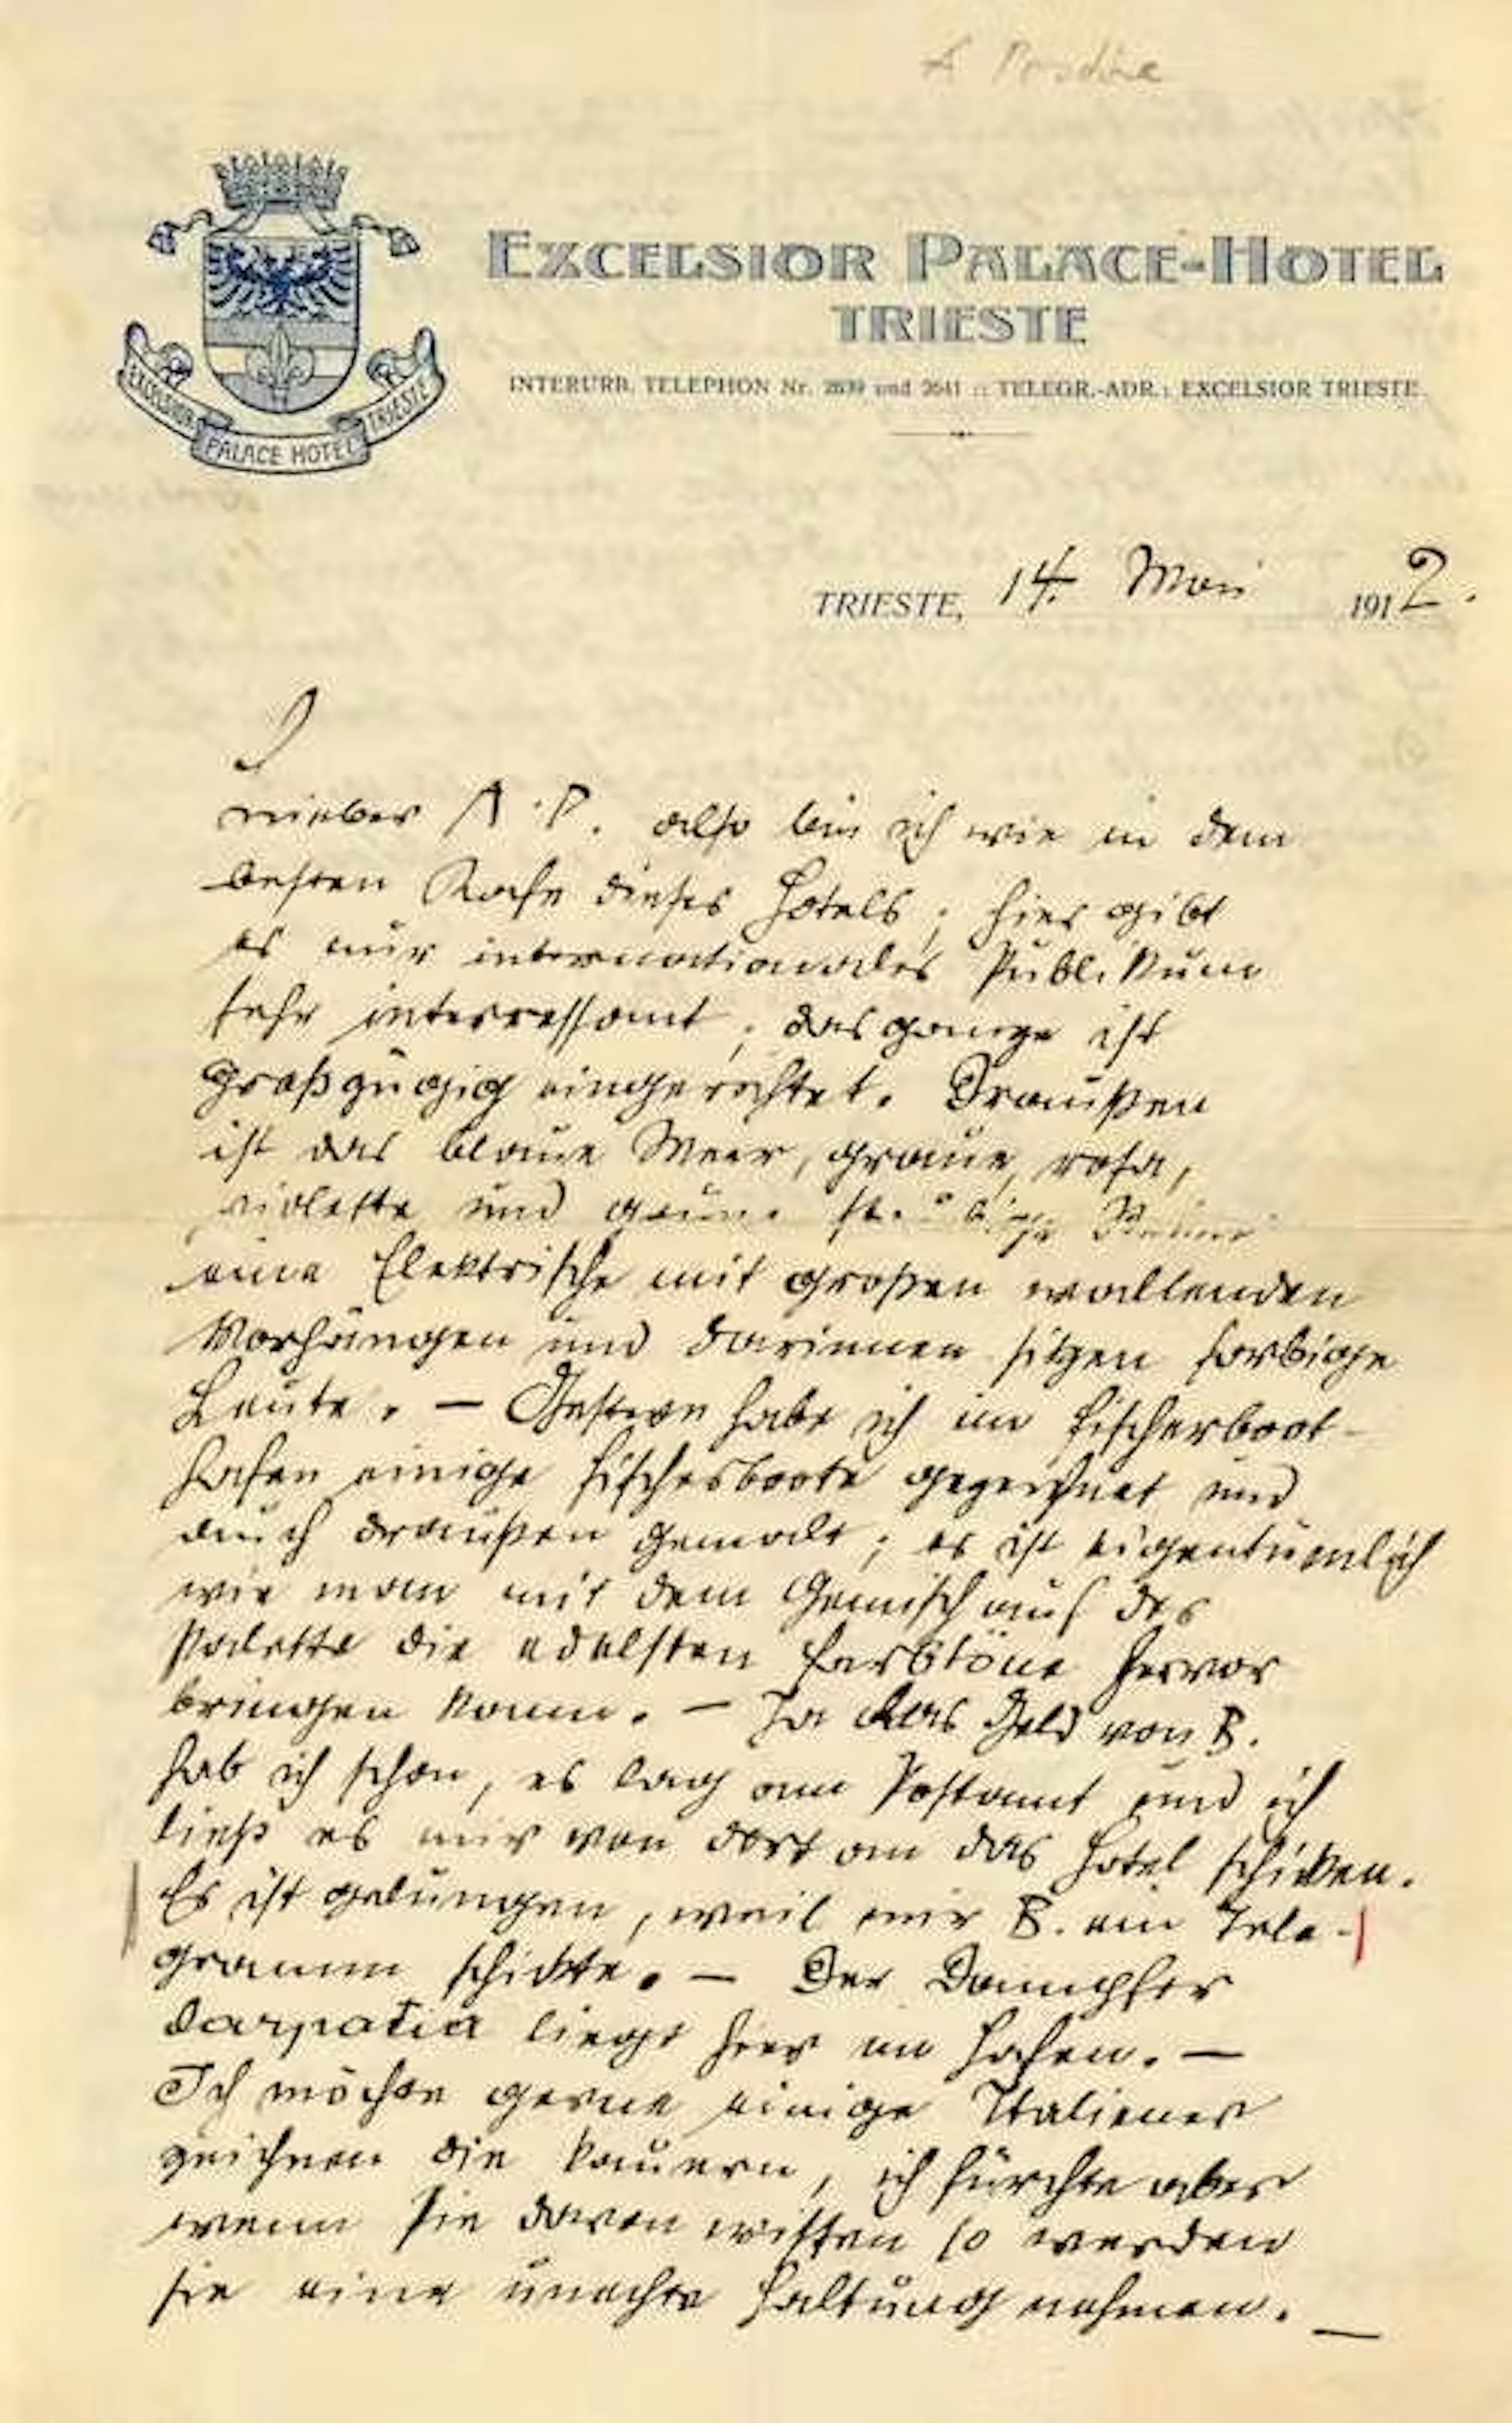 EXCELSIOR PALACE-HOTEL
TRIESTE
INTERURB. TELEPHON Nr. 2639 und 2641 :: TELEGR.-ADR.: EXCELSIOR TRIESTE.
EXCELSIOR PALACE HOTEL TRIESTE
TRIESTE, 14. Mai 1912.
A. P. also bin ich wie in dem
besten Kafe dieses Hotels; hier gibt
es nur internationales Publikum
sehr interressant; das ganze ist
großzügig eingerichtet. Draußen
ist das blaue Meer, graue, rosa,
violette und grüne
eine Elektrische mit großen wallenden
Vorhängen und darinnen sitzen farbige
Leute. — Gestern habe ich im Fischerboot-
hafen einige Fischerboote gezeichnet und
auch draußen gemalt; es ist eigentümlich
wie man mit dem Gemisch auf der
Palette die edelsten Farbtöne hervor
bringen kann. — Ja das Geld von B.
hab ich schon, es lag am Postamt und ich
ließ es mir von dort an das Hotel schicken.
Es ist gelungen, weil mir B. ein Tele-
gramm schickte. — Der Dampfer
liegt hier im Hafen. —
Ich möchte gerne einige Italiener
zeichnen die kauern, ich fürchte aber
wenn sie davon wissen so werden
sie eine unechte Haltung nehmen. —